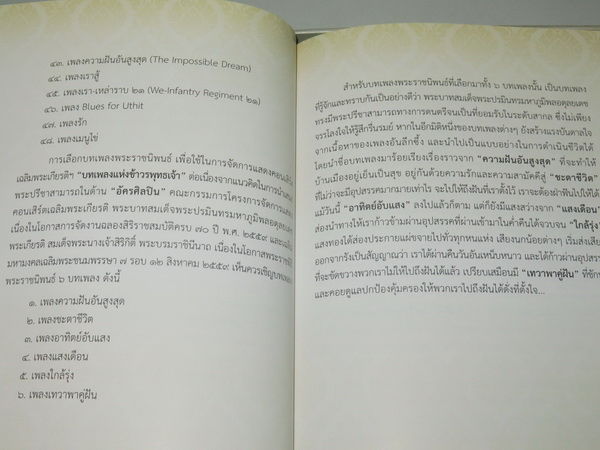 ๔๓. เพลงความฝันอันสูงสุด (The Impossible Dream)
๔๔. เพลงเราสู้
๔๕. เพลงเรา-เหล่าราบ ๒๑ (We-Infantry Regiment ๒๑)
๔๖. เพลง Blues for Uthit
๔๗. เพลงรัก
๔๘. เพลงเมนูไข่
การเลือกบทเพลงพระราชนิพนธ์ เพื่อใช้ในการจัดการแสดงคอนเสิร์ต
เฉลิมพระเกียรติฯ "บทเพลงแห่งข้าวรพุทธเจ้า" ต่อเนื่องจากแนวคิดในการนำเสนอ
พระปรีชาสามารถในด้าน "อัครศิลปิน" คณะกรรมการโครงการจัดการแสดง
คอนเสิร์ตเฉลิมพระเกียรติ พระบาทสมเด็จพระปรมินทรมหาภูมิพลอดุลยเดช
เนื่องในโอกาสการจัดงานฉลองสิริราชสมบัติครบ ๗๐ ปี พ.ศ. ๒๕๕๙ และเฉลิม
พระเกียรติ สมเด็จพระนางเจ้าสิริกิติ์ พระบรมราชินีนาถ เนื่องในโอกาสพระราชพิธี
มหามงคลเฉลิมพระชนมพรรษา ๗ รอบ ๑๒ สิงหาคม ๒๕๕๙ เห็นควรเชิญบทเพลง
พระราชนิพนธ์ ๖ บทเพลง ดังนี้
๑. เพลงความฝันอันสูงสุด
๒. เพลงชะตาชีวิต
๓. เพลงอาทิตย์อับแสง
๔. เพลงแสงเดือน
๕. เพลงใกล้รุ่ง
๖. เพลงเทวาพาคู่ฝัน
สำหรับบทเพลงพระราชนิพนธ์ที่เลือกมาทั้ง ๖ บทเพลงนั้น เป็นบทเพลง
ที่รู้จักและทราบกันเป็นอย่างดีว่า พระบาทสมเด็จพระปรมินทรมหาภูมิพลอดุลยเดช
ทรงมีพระปรีชาสามารถทางการดนตรีจนเป็นที่ยอมรับในระดับสากล ซึ่งไม่เพียง
จรรโลงใจให้รู้สึกรื่นรมย์ หากในอีกมิติหนึ่งของบทเพลงต่างๆ ยังสร้างแรงบันดาลใจ
จากเนื้อหาของเพลงอันลึกซึ้ง และนำไปเป็นแบบอย่างในการดำเนินชีวิตได้
โดยนำชื่อบทเพลงมาร้อยเรียงเรื่องราวจาก "ความฝันอันสูงสุด" ที่จะทำให้
บ้านเมืองอยู่เย็นเป็นสุข อยู่กันด้วยความรักและความสามัคคีสู่ "ชะตาชีวิต"
ที่ไม่ว่าจะมีอุปสรรคมากมายเท่าไร จะไปให้ถึงฝันที่เราตั้งไว้ เราจะต้องฝ่าฟันไปให้ได้
แม้วันนี้ "อาทิตย์อับแสง" ลงไปแล้วก็ตาม แต่ก็ยังมีแสงสว่างจาก "แสงเดือน"
ส่องนำทางให้เราก้าวข้ามผ่านอุปสรรคที่ผ่านเข้ามาในค่ำคืนได้จวบจน "ใกล้รุ่ง"
แสงทองได้ส่องประกายแผ่ขจายไปทั่วทุกหนแห่ง เสียงนกน้อยต่างๆ เริ่มส่งเสียง
ออกจากรังเป็นสัญญาณว่า เราได้ผ่านคืนวันอันเหน็บหนาว และได้ก้าวผ่านอุปสรรค
ที่จะขัดขวางพวกเราไม่ให้ไปถึงฝันได้แล้ว เปรียบเสมือนมี "เทวาพาคู่ฝัน" ที่ชักนำ
และคอยดูแลปกป้องคุ้มครองให้พวกเราไปถึงฝันได้ดั่งที่ตั้งใจ...